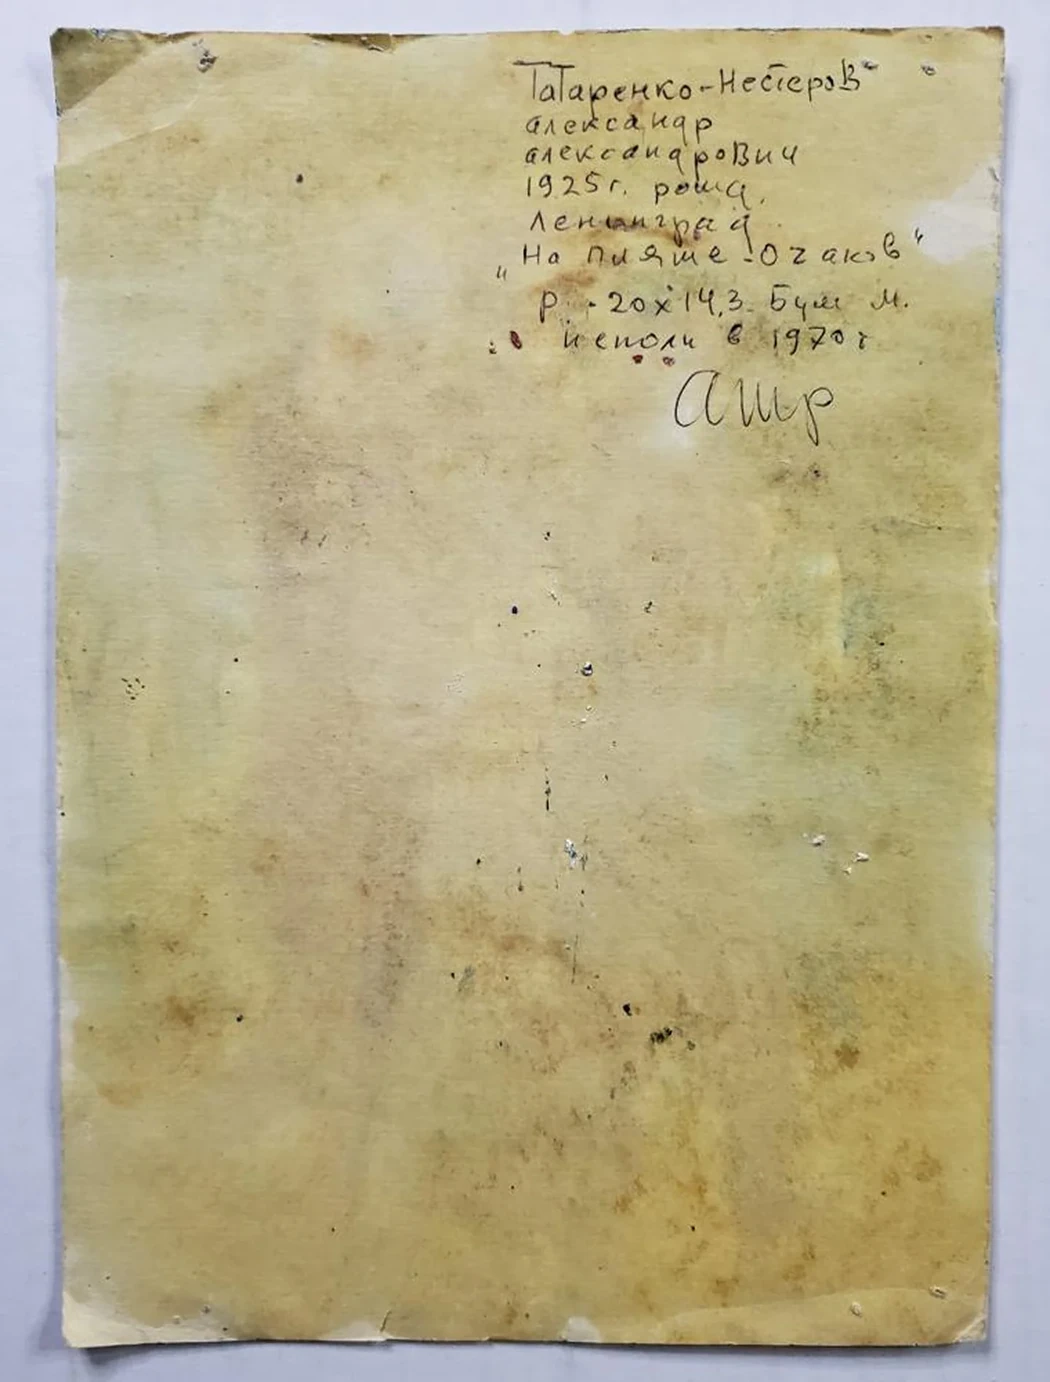 Татаренко-Нестеров
александр
александрович
1925г. рожд.
Ленинград
„На пляже-Очаков"
р.-20х14,3. Бум м.
исполн в 1970г